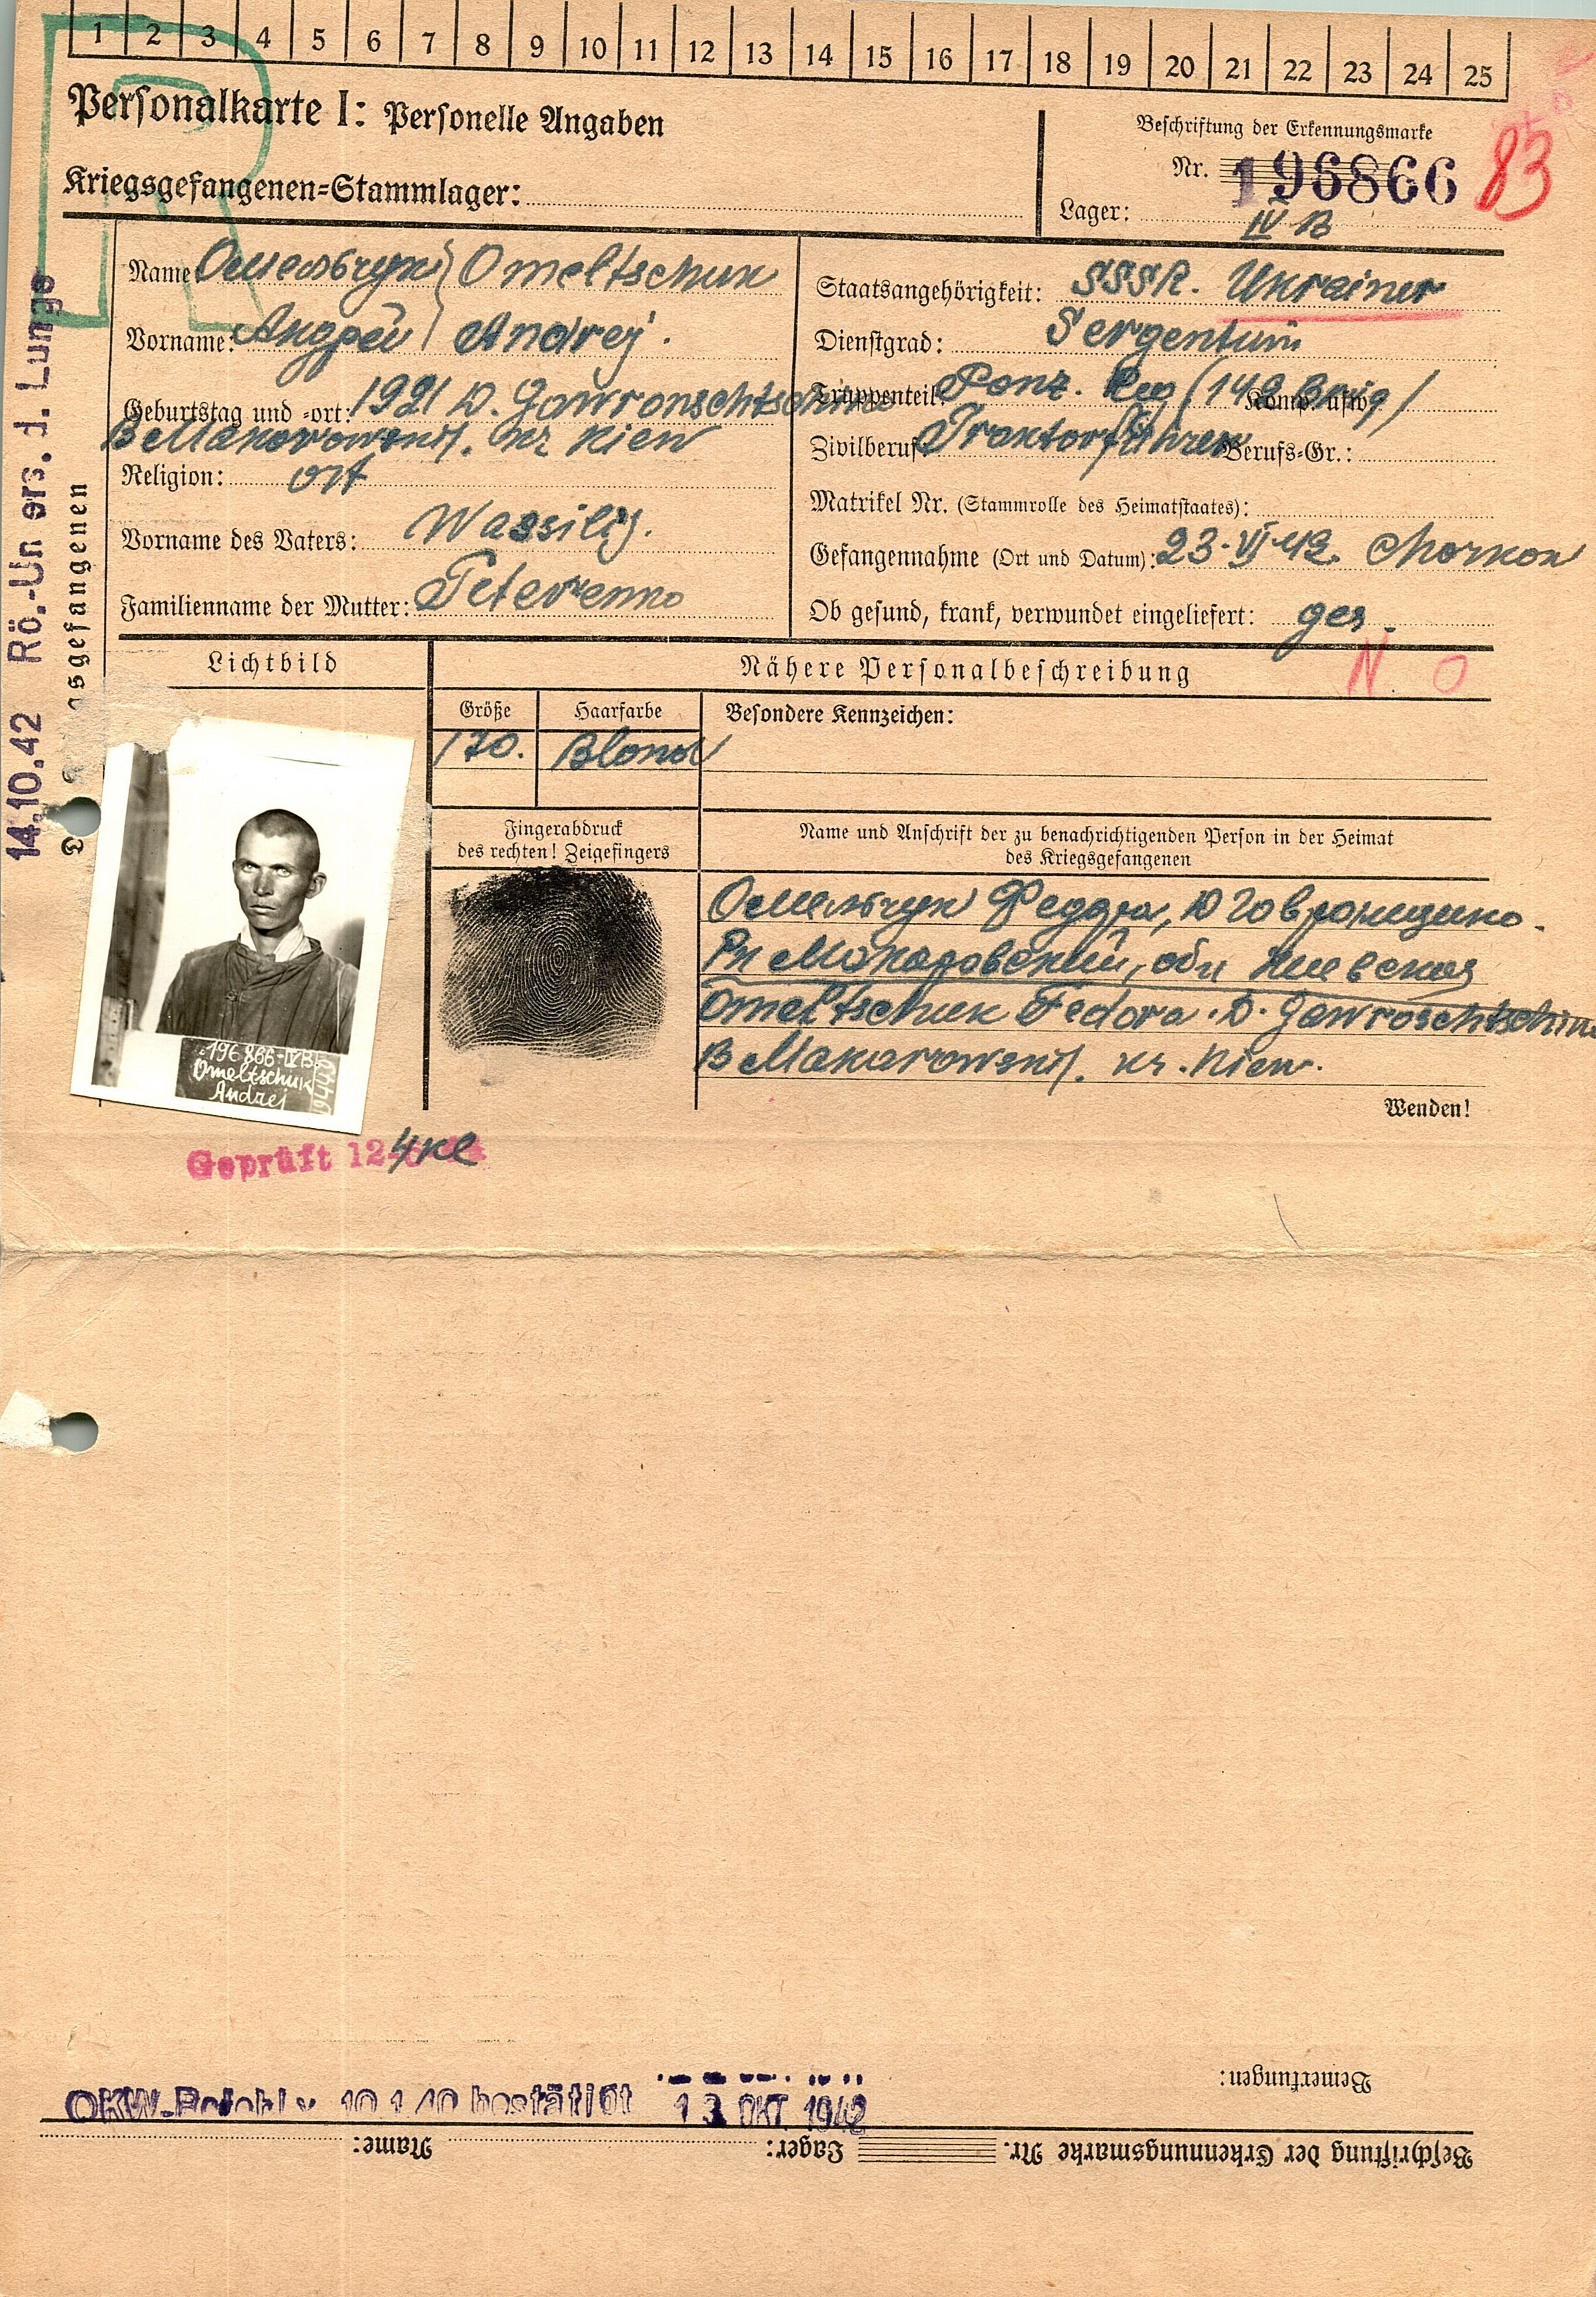 1 2 3 4 5 6 7 8 9 10 11 12 13 14 15 16 17 18 19 20 21 22 23 24 25
Personalkarte I: Personelle Angaben
Kriegsgefangenen-Stammlager:
Beschriftung der Erkennungsmarke
Nr. 196866
83
Lager: IV B
Name: Омельчук Omeltschuk
Vorname: Андрей Andrej.
Geburtstag und -ort: 1921 D. Gawronschtschina
B Makarowskij. kr Kiew
Religion: ort
Vorname des Vaters: Wassilij.
Familienname der Mutter:
Staatsangehörigkeit: SSSR. Ukrainer
Dienstgrad:
Truppenteil: Panz. Komp. usw.
Zivilberuf: Traktorführer Berufs-Gr.:
Matrikel Nr. (Stammrolle des Heimatstaates):
Gefangennahme (Ort und Datum): 23. VI 42. Charkow
Ob gesund, krank, verwundet eingeliefert: ges.
N O
Lichtbild
Nähere Personalbeschreibung
Größe
Haarfarbe
Besondere Kennzeichen:
170.
Blond
Fingerabdruck
des rechten! Zeigefingers
Name und Anschrift der zu benachrichtigenden Person in der Heimat
des Kriegsgefangenen
Омельчук Феддра, D
Рн Макаровский, обл Киевская
Omeltschuk Fedora. D. Gawroschtschina
B Makarowskij. kr. Kiew.
Wenden!
196866-IVB
Omeltschuk
Andrej
Geprüft 12
4 Kl
14.10.42 Rö.-Un ers. d. Lunge
gefangenen
OKW-Befehl v. 10 1 40 bestätigt 13 OKT 1942
Bemerkungen:
Beschriftung der Erkennungsmarke Nr. Lager: Name: